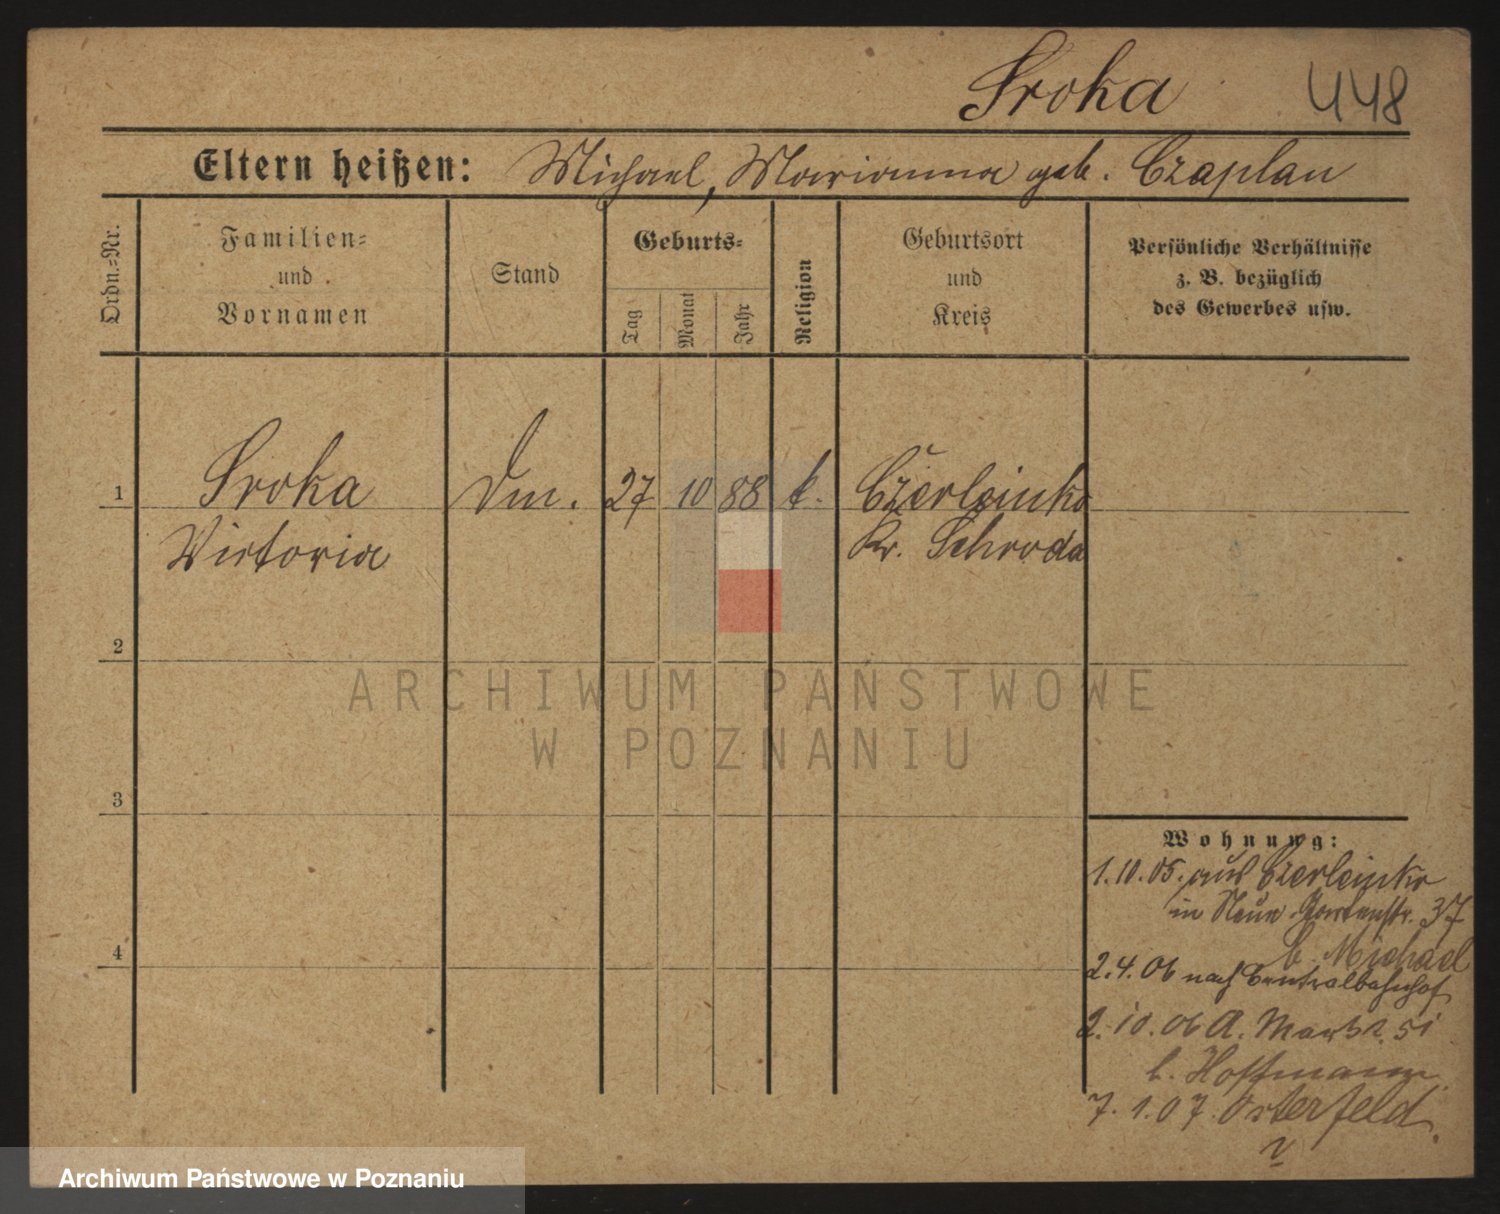 Sroka 448
Eltern heißen: Michael, Marianna geb. Czaplau
Ordn.=Nr.
Familien=
und
Vornamen
Stand
Geburts=
Tag
Monat
Jahr
Religion
Geburtsort
und
Kreis
Persönliche Verhältnisse
z. B. bezüglich
des Gewerbes usw.
1 Sroka Dm. 27 10 88 k. Czerleinko
Victoria Kr. Schroda
2
3
4
Wohnung:
1.10.05. aus Czerleinko
in Neue Gartenstr. 37
b. Michael
2.4.06 nach Centralbahnhof
2.10.06 A. Markt 51
b. Hoffmann
7.1.07. Osterfeld.
ARCHIWUM PAŃSTWOWE
W POZNANIU
Archiwum Państwowe w Poznaniu